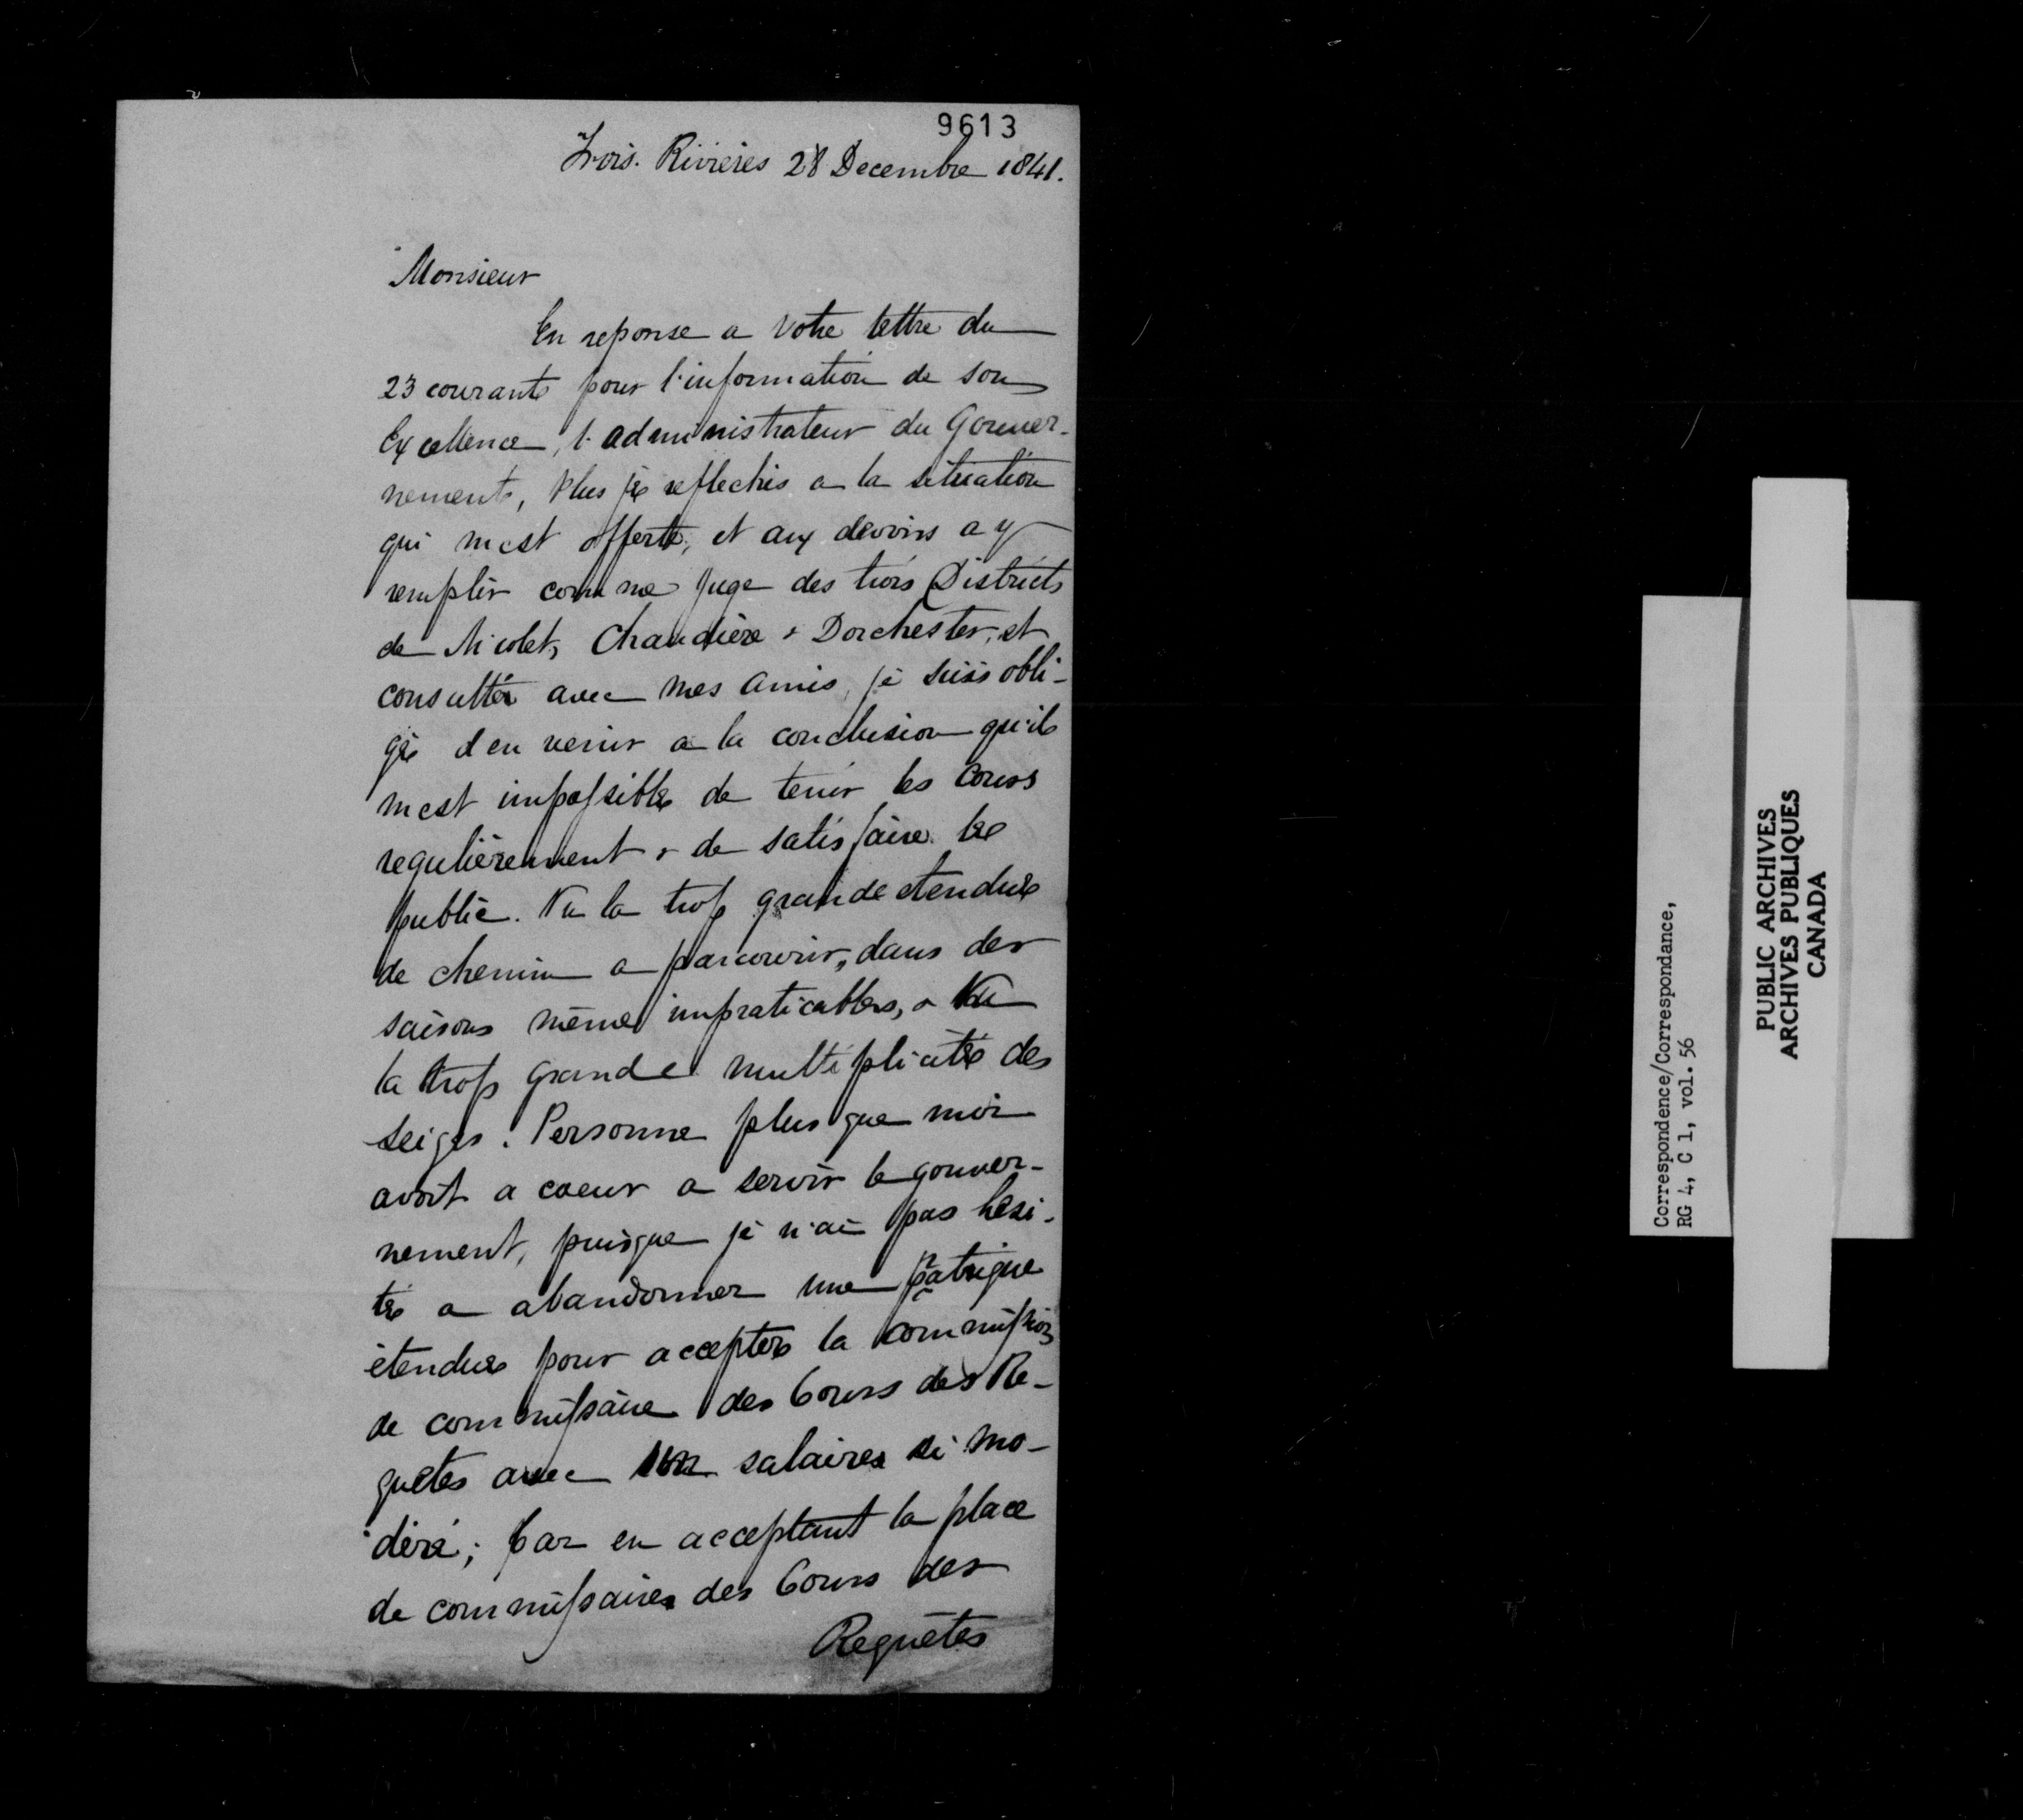 9613
Trois. Rivieres 28 Decembre 1841.
Monsieur
En reponse a votre lettre du
23 courant pour l'information de son
Excellence, l'administrateur du Gouver-
nement, Plus je reflechis a la situation
qui mest offerte, et aux devoirs a y
remplir comme Juge des trois Districts
de Nicolet, Chaudière & Dorchester, et
consulté avec mes amis, je suis obli-
gé d'en venir a la conclusion qu'il
mest impossible de tenir les Cours
regulièrement & de satisfaire le
public. Vu la trop grande etendue
de chemin a parcourir, dans des
saisons même impraticables, & Vu
la trop grande multiplicité des
seiges. Personne plus que moi
avoit a coeur a servir le gouver-
nement, puisque je n'ai pas hesi-
té a abandonner une pratique
étendue pour accepter la commission
de commissaire des Cours des Re-
quetes avec un salaire si mo-
déré; Car en acceptant la place
de commissaire des Cours des
Requêtes
Correspondence/Correspondance,
RG 4, C 1, vol. 56
PUBLIC ARCHIVES
ARCHIVES PUBLIQUES
CANADA